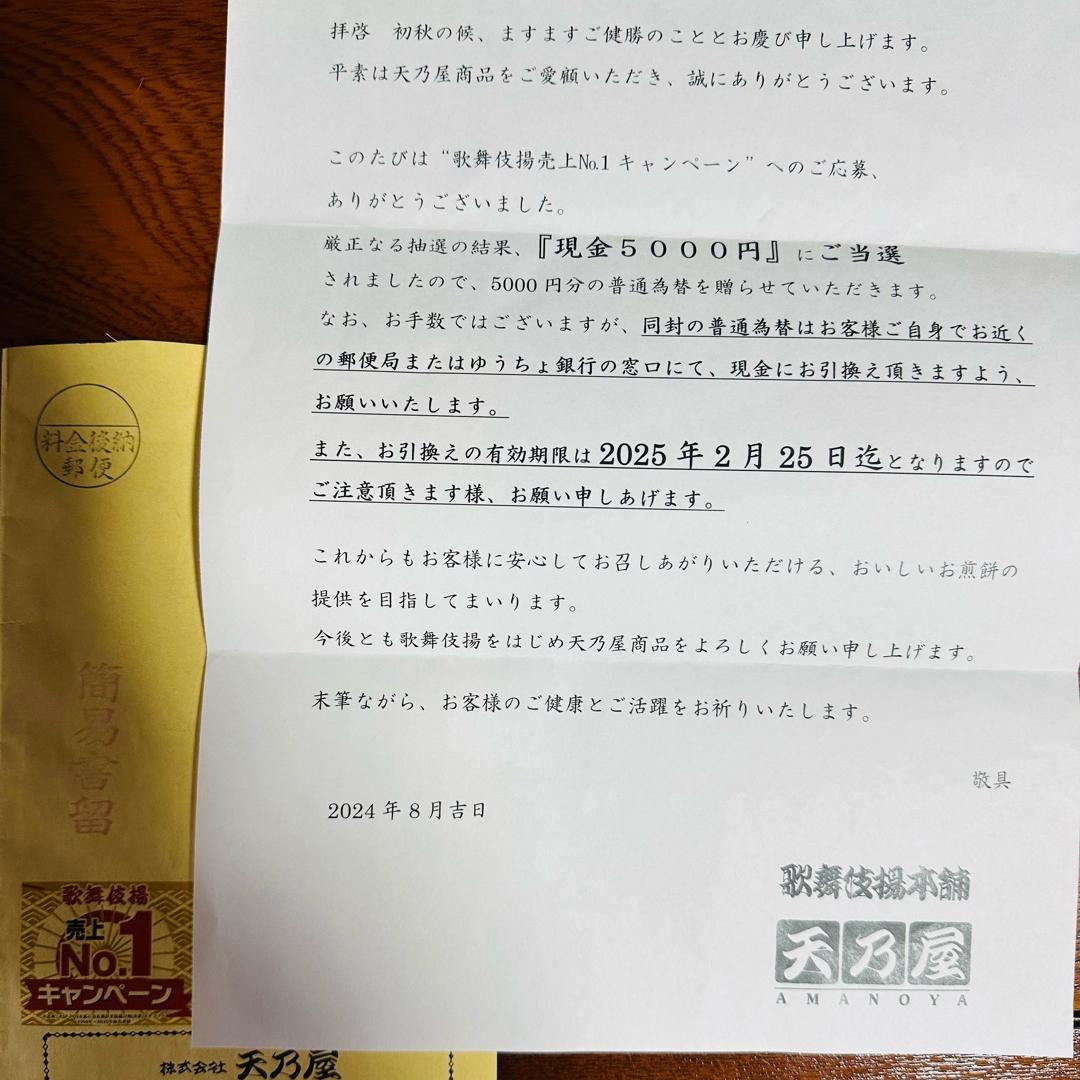 拝啓　初秋の候、ますますご健勝のこととお慶び申し上げます。
平素は天乃屋商品をご愛顧いただき、誠にありがとうございます。
このたびは“歌舞伎揚売上No.1キャンペーン”へのご応募、
ありがとうございました。
厳正なる抽選の結果、『現金５０００円』にご当選
されましたので、5000円分の普通為替を贈らせていただきます。
なお、お手数ではございますが、同封の普通為替はお客様ご自身でお近く
の郵便局またはゆうちょ銀行の窓口にて、現金にお引換え頂きますよう、
お願いいたします。
また、お引換えの有効期限は2025年2月25日迄となりますので
ご注意頂きます様、お願い申しあげます。
これからもお客様に安心してお召しあがりいただける、おいしいお煎餅の
提供を目指してまいります。
今後とも歌舞伎揚をはじめ天乃屋商品をよろしくお願い申し上げます。
末筆ながら、お客様のご健康とご活躍をお祈りいたします。
敬具
2024年8月吉日
歌舞伎揚本舗
天乃屋
AMANOYA
料金後納
郵便
簡易書留
歌舞伎揚
売上
No.1
キャンペーン
株式会社 天乃屋